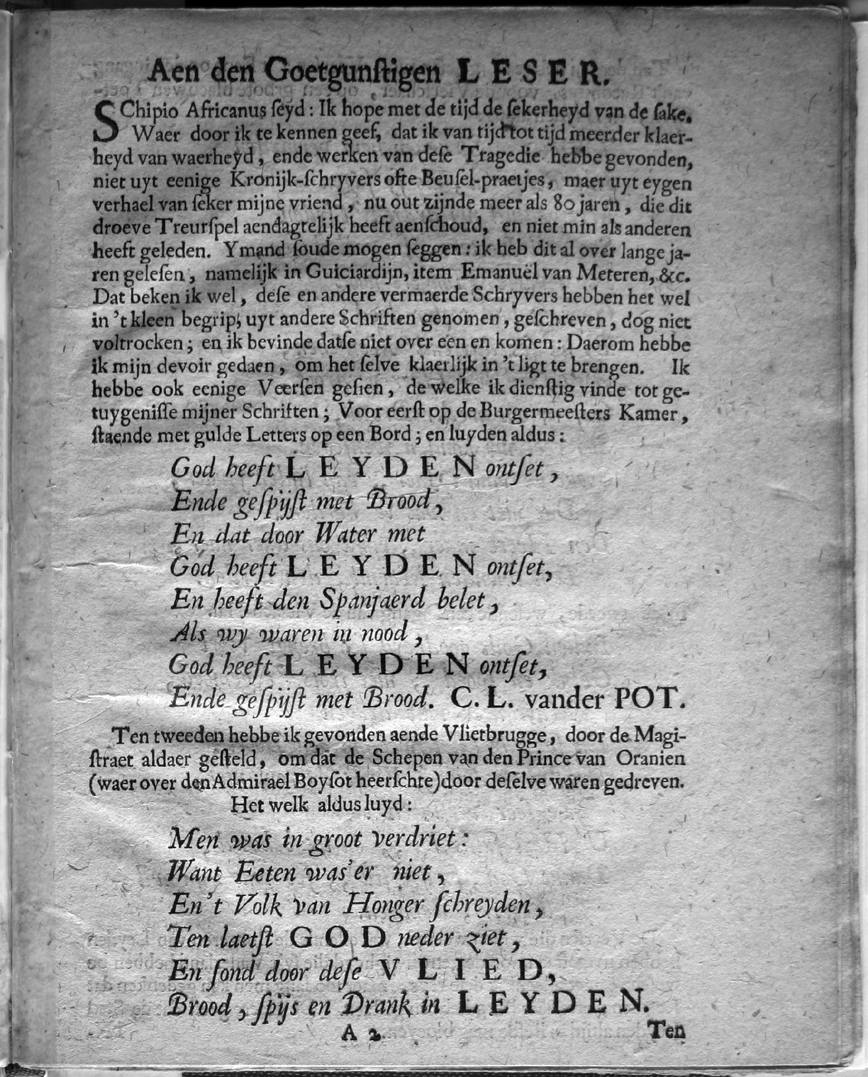 Aen den Goetgunſtigen LESER.
SChipio Africanus ſeyd: Ik hope met de tijd de ſekerheyd van de ſake.
Waer door ik te kennen geef, dat ik van tijd tot tijd meerder klaer-
heyd van waerheyd, ende werken van deſe Tragedie hebbe gevonden,
niet uyt eenige Kronijk-ſchryvers ofte Beuſel-praetjes, maer uyt eygen
verhael van ſeker mijne vriend, nu out zijnde meer als 80 jaren, die dit
droeve Treurſpel aendagtelijk heeft aenſchoud, en niet min als anderen
heeft geleden. Ymand ſoude mogen ſeggen: ik heb dit al over lange ja-
ren geleſen, namelijk in Guiciardijn, item Emanuël van Meteren, &c.
Dat beken ik wel, deſe en andere vermaerde Schryvers hebben het wel
in 't kleen begrip, uyt andere Schriften genomen, geſchreven, dog niet
voltrocken; en ik bevinde datſe niet over een en komen: Daerom hebbe
ik mijn devoir gedaen, om het ſelve klaerlijk in 't ligt te brengen. Ik
hebbe ook eenige Veerſen geſien, de welke ik dienſtig vinde tot ge-
tuygeniſſe mijner Schriften; Voor eerſt op de Burgermeeſters Kamer,
ſtaende met gulde Letters op een Bord; en luyden aldus:
God heeft LEYDEN ontſet,
Ende geſpijſt met Brood,
En dat door Water met
God heeft LEYDEN ontſet,
En heeft den Spanjaerd belet,
Als wy waren in nood,
God heeft LEYDEN ontſet,
Ende geſpijſt met Brood. C. L. vander POT.
Ten tweeden hebbe ik gevonden aende Vlietbrugge, door de Magi-
ſtraet aldaer geſteld, om dat de Schepen van den Prince van Oranien
(waer over den Admirael Boyſot heerſchte) door deſelve waren gedreven.
Het welk aldus luyd:
Men was in groot verdriet:
Want Eeten was'er niet,
En't Volk van Honger ſchreyden,
Ten laetſt GOD neder ziet,
En ſond door deſe VLIED,
Brood, ſpijs en Drank in LEYDEN.
A 2 Ten